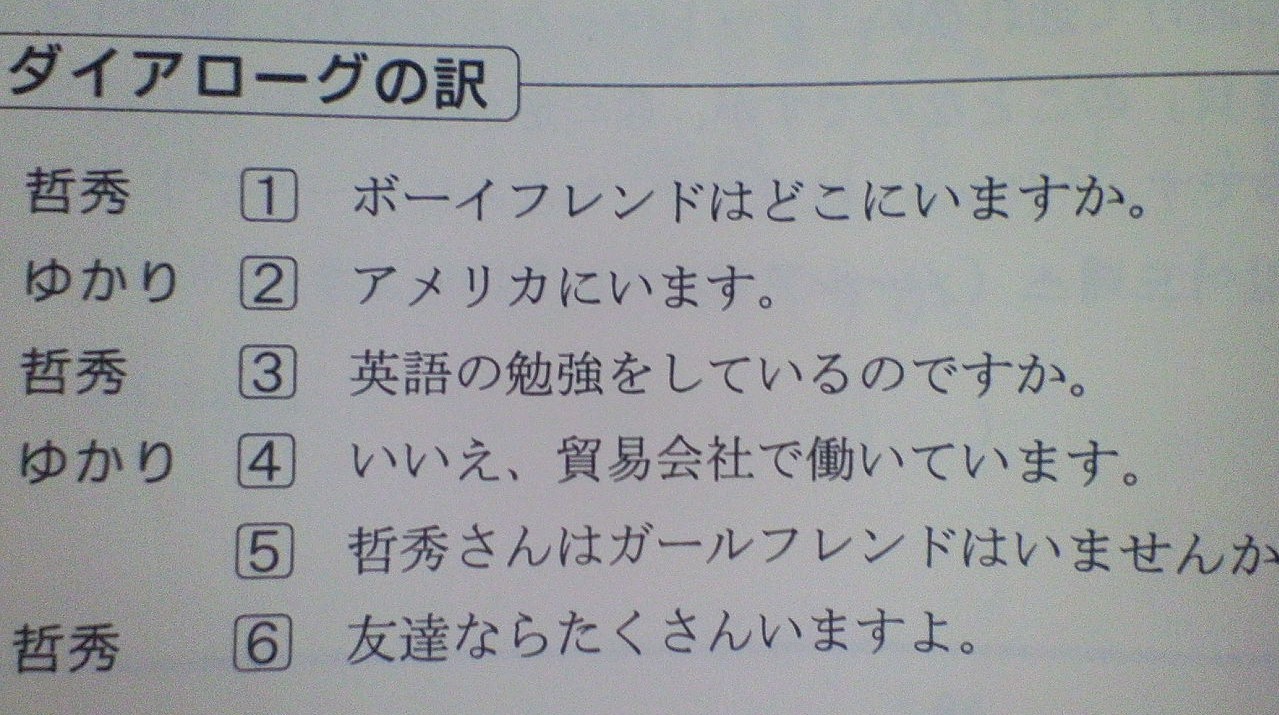 ダイアローグの訳
哲秀 1 ボーイフレンドはどこにいますか。
ゆかり 2 アメリカにいます。
哲秀 3 英語の勉強をしているのですか。
ゆかり 4 いいえ、貿易会社で働いています。
5 哲秀さんはガールフレンドはいませんか
哲秀 6 友達ならたくさんいますよ。